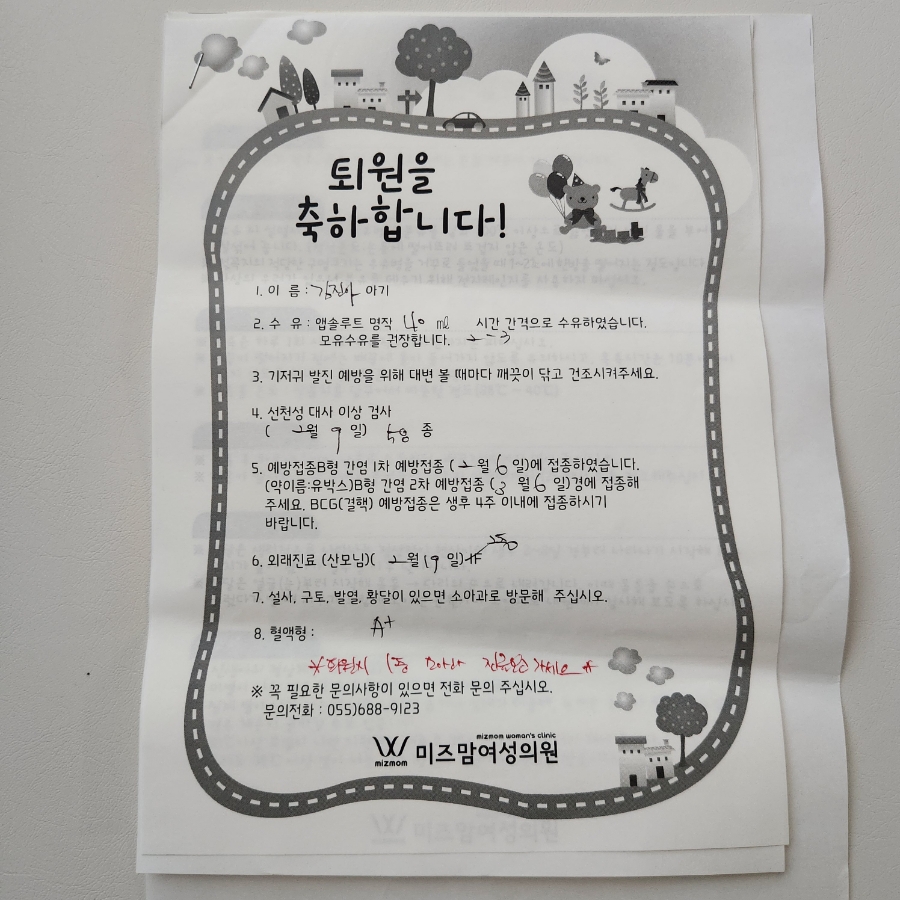 퇴원을
축하합니다!
1. 이 름 : 김진아 아기
2. 수 유 : 앱솔루트 명작 40 ml 시간 간격으로 수유하였습니다.
모유수유를 권장합니다. 2-3
3. 기저귀 발진 예방을 위해 대변 볼 때마다 깨끗이 닦고 건조시켜주세요.
4. 선천성 대사 이상 검사
( 2월 9 일) 종
5. 예방접종B형 간염 1차 예방접종 ( 2 월 6 일)에 접종하였습니다.
(약이름:유박스)B형 간염 2차 예방접종 (3 월 6 일)경에 접종해
주세요. BCG(결핵) 예방접종은 생후 4주 이내에 접종하시기
바랍니다.
6. 외래진료 (산모님)( 2월 19 일)
7. 설사, 구토, 발열, 황달이 있으면 소아과로 방문해 주십시오.
8. 혈액형 : A+
※ 꼭 필요한 문의사항이 있으면 전화 문의 주십시오.
문의전화 : 055)688-9123
mizmom woman's clinic
mizmom 미즈맘여성의원